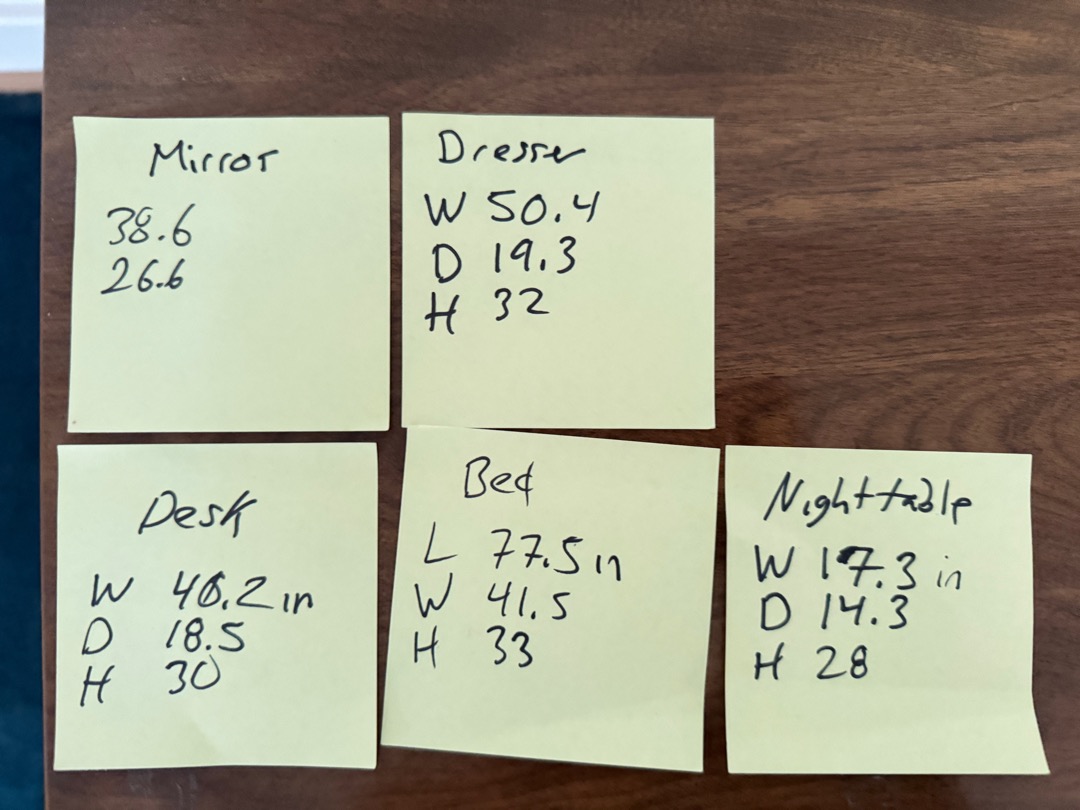 Mirror
38.6
26.6
Dresser
W 50.4
D 19.3
H 32
Desk
W 46.2 in
D 18.5
H 30
Bed
L 77.5 in
W 41.5
H 33
Nighttable
W 17.3 in
D 14.3
H 28